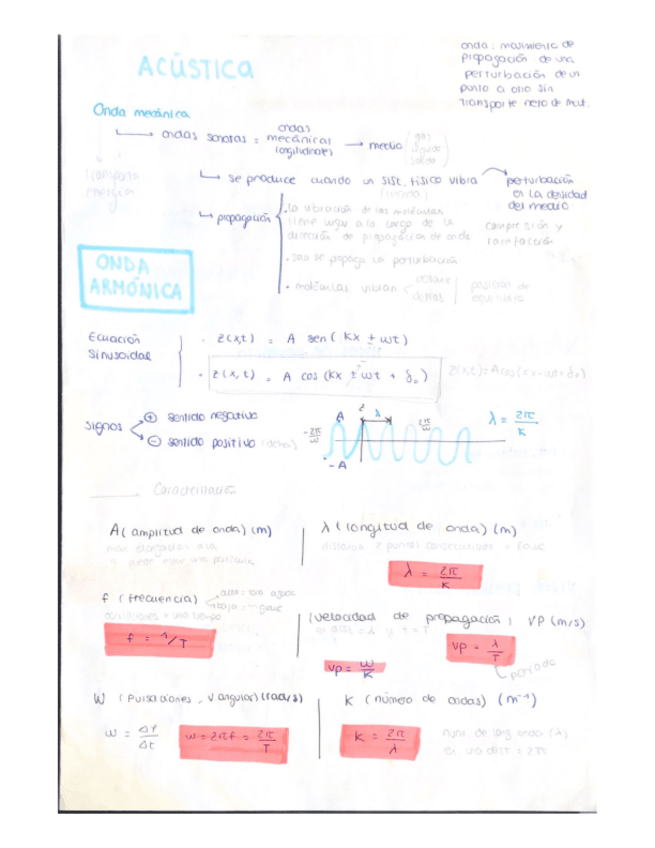 onda: movimiento de
propagación de una
perturbación de un
punto a otro sin
transporte neto de mat.
ACÚSTICA
Onda mecánica
ondas sonoras = ondas mecánicas longitudinales → medio gas líquido sólido
transporta
energía
se produce cuando un sist. físico vibra
perturbación
en la densidad
del medio
propagación
• la vibración de las moléculas
tiene lugar a lo largo de la
dirección de propagación de onda
compresión y
rarefacción
• solo se propaga la perturbación
• moléculas vibran
posición de
equilibrio
ONDA
ARMÓNICA
Ecuación
sinusoidal
• z(x,t) = A sen(kx ± ωt)
• z(x,t) = A cos(kx ± ωt + δ₀)
z(x,t) = A cos(kx - ωt + δ₀)
signos
⊕ sentido negativo
⊖ sentido positivo
A
z
λ
-2π/ω
2π/ω
-A
λ = 2π/K
Características
A (amplitud de onda) (m)
λ (longitud de onda) (m)
distancia 2 puntos consecutivos = fase
λ = 2π/K
f (frecuencia)
alta = tono agudo
baja = " grave
f = 1/T
(velocidad de propagación) VP (m/s)
si dist = λ y t = T
VP = ω/K
VP = λ/T
periodo
W (pulsaciones, v. angular) (rad/s)
K (número de ondas) (m⁻¹)
ω = Δφ/Δt
ω = 2πf = 2π/T
K = 2π/λ
núm. de long. onda (λ)
en una dist = 2π